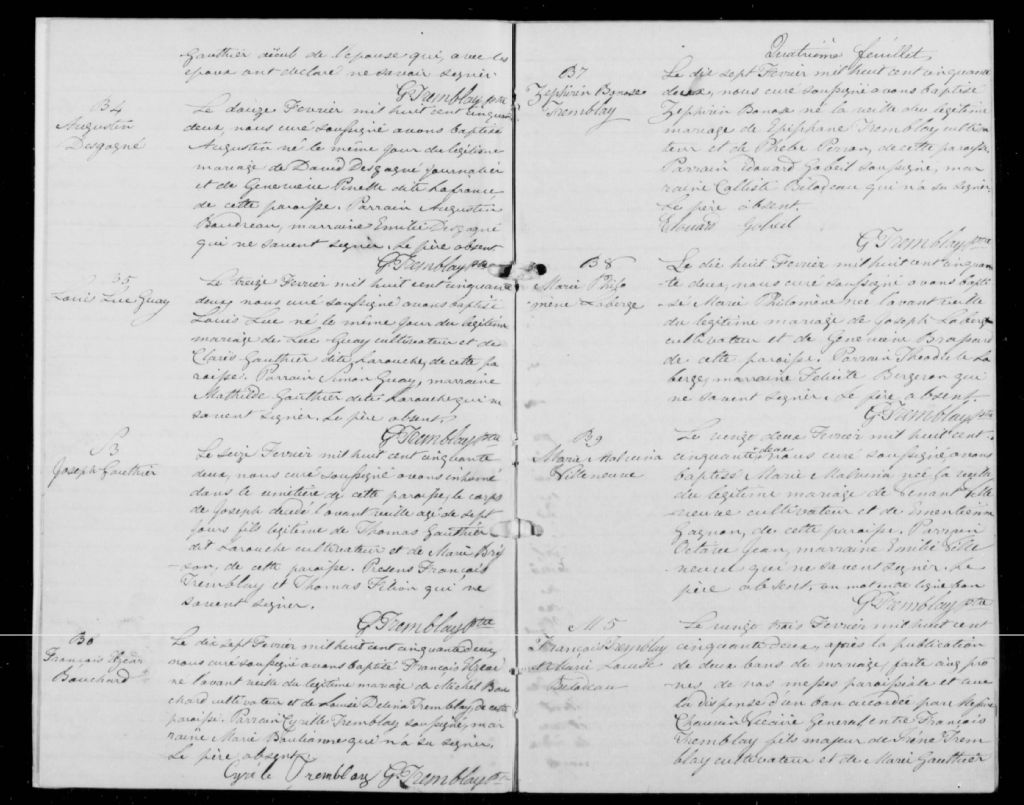 Gauthier aïeul de l'épouse qui, avec les
époux ont déclaré ne savoir signer.
G Tremblay ptre
B4
Augustin
Desgagné
Le douze Fevrier mil huit cent cinquante
deux, nous curé soussigné avons baptisé
Augustin né le même jour du légitime
mariage de David Desgagné journalier
et de Genevieve Pinette dite Lafrance
de cette paroisse. Parrain Augustin
Boudreau, marraine Emilie Desgagné
qui ne savent signer. Le père absent
G Tremblay ptre
B5
Louis Luc Guay
Le treize Fevrier mil huit cent cinquante
deux, nous curé soussigné avons baptisé
Louis Luc né le même jour du légitime
mariage de Luc Guay cultivateur et de
Claris Gauthier dite Larouche, de cette pa
roisse. Parrain Simon Guay, marraine
Mathilde Gauthier dite Larouche qui ne
savent signer. Le père absent.
G Tremblay ptre
S3
Joseph Gauthier
Le seize Fevrier mil huit cent cinquante
deux, nous curé soussigné avons inhumé
dans le cimitière de cette paroisse, le corps
de Joseph décédé l'avant veille agé de sept
jours fils légitime de Thomas Gauthier
dit Larouche cultivateur et de Marie Bri
son, de cette paroisse. Présens François
Tremblay et Thomas Filion qui ne
savent signer.
G Tremblay ptre
B6
François
Bouchard
Le dix sept Fevrier mil huit cent cinquante deux,
nous curé soussigné avons baptisé François
né l'avant veille du légitime mariage de Michel Bou
chard cultivateur et de Louise Delina Tremblay, de cette
paroisse. Parrain Cyrille Tremblay soussigné, mar
raine Marie Boulianne qui n'a su signer.
Le père absent
Cyrile Tremblay G Tremblay ptre
Quatrième feuillet
B7
Zephirin Bonose
Tremblay
Le dix sept Fevrier mil huit cent cinquante
deux, nous curé soussigné avons baptisé
Zephirin Bonose né la veille du légitime
mariage de Epiphane Tremblay cultiva
teur et de Phebé Perron, de cette paroisse.
Parrain Edouard Gobeil soussigné, mar
raine Calliste Bilodeau qui n'a su signer.
Le père absent.
Edouard Gobeil
G Tremblay ptre
B8
Marie Philo
mène Laberge
Le dix huit Fevrier mil huit cent cinquan
te deux, nous curé soussigné avons bapti
sé Marie Philomène née l'avant veille
du légitime mariage de Joseph Laberge
cultivateur et de Genevieve Brassard
de cette paroisse. Parrain Théodule La
berge, marraine Félicité Bergeron qui
ne savent signer. Le père absent.
G Tremblay ptre
B9
Marie Malvina
Villeneuve
Le vingt deux Fevrier mil huit cent
cinquante deux nous curé soussigné avons
baptisé Marie Malvina née la veille
du légitime mariage de Venant Ville
neuve cultivateur et de Clementine
Gagnon, de cette paroisse. Parrain
Octave Jean, marraine Emilie Ville
neuve qui ne savent signer. Le
père absent. un mot entre ligne bon
G Tremblay ptre
M5
François Tremblay
et Marie Louise
Bilodeau
Le vingt trois Fevrier mil huit cent
cinquante deux, après la publication
de deux bans de mariage, faite aux prô
nes de nos messes paroissiales et vue
la dispense d'un ban accordée par Messire
Cazeau Vicaire General entre François
Tremblay fils majeur de Péné Trem
blay cultivateur et de Marie Gauthier